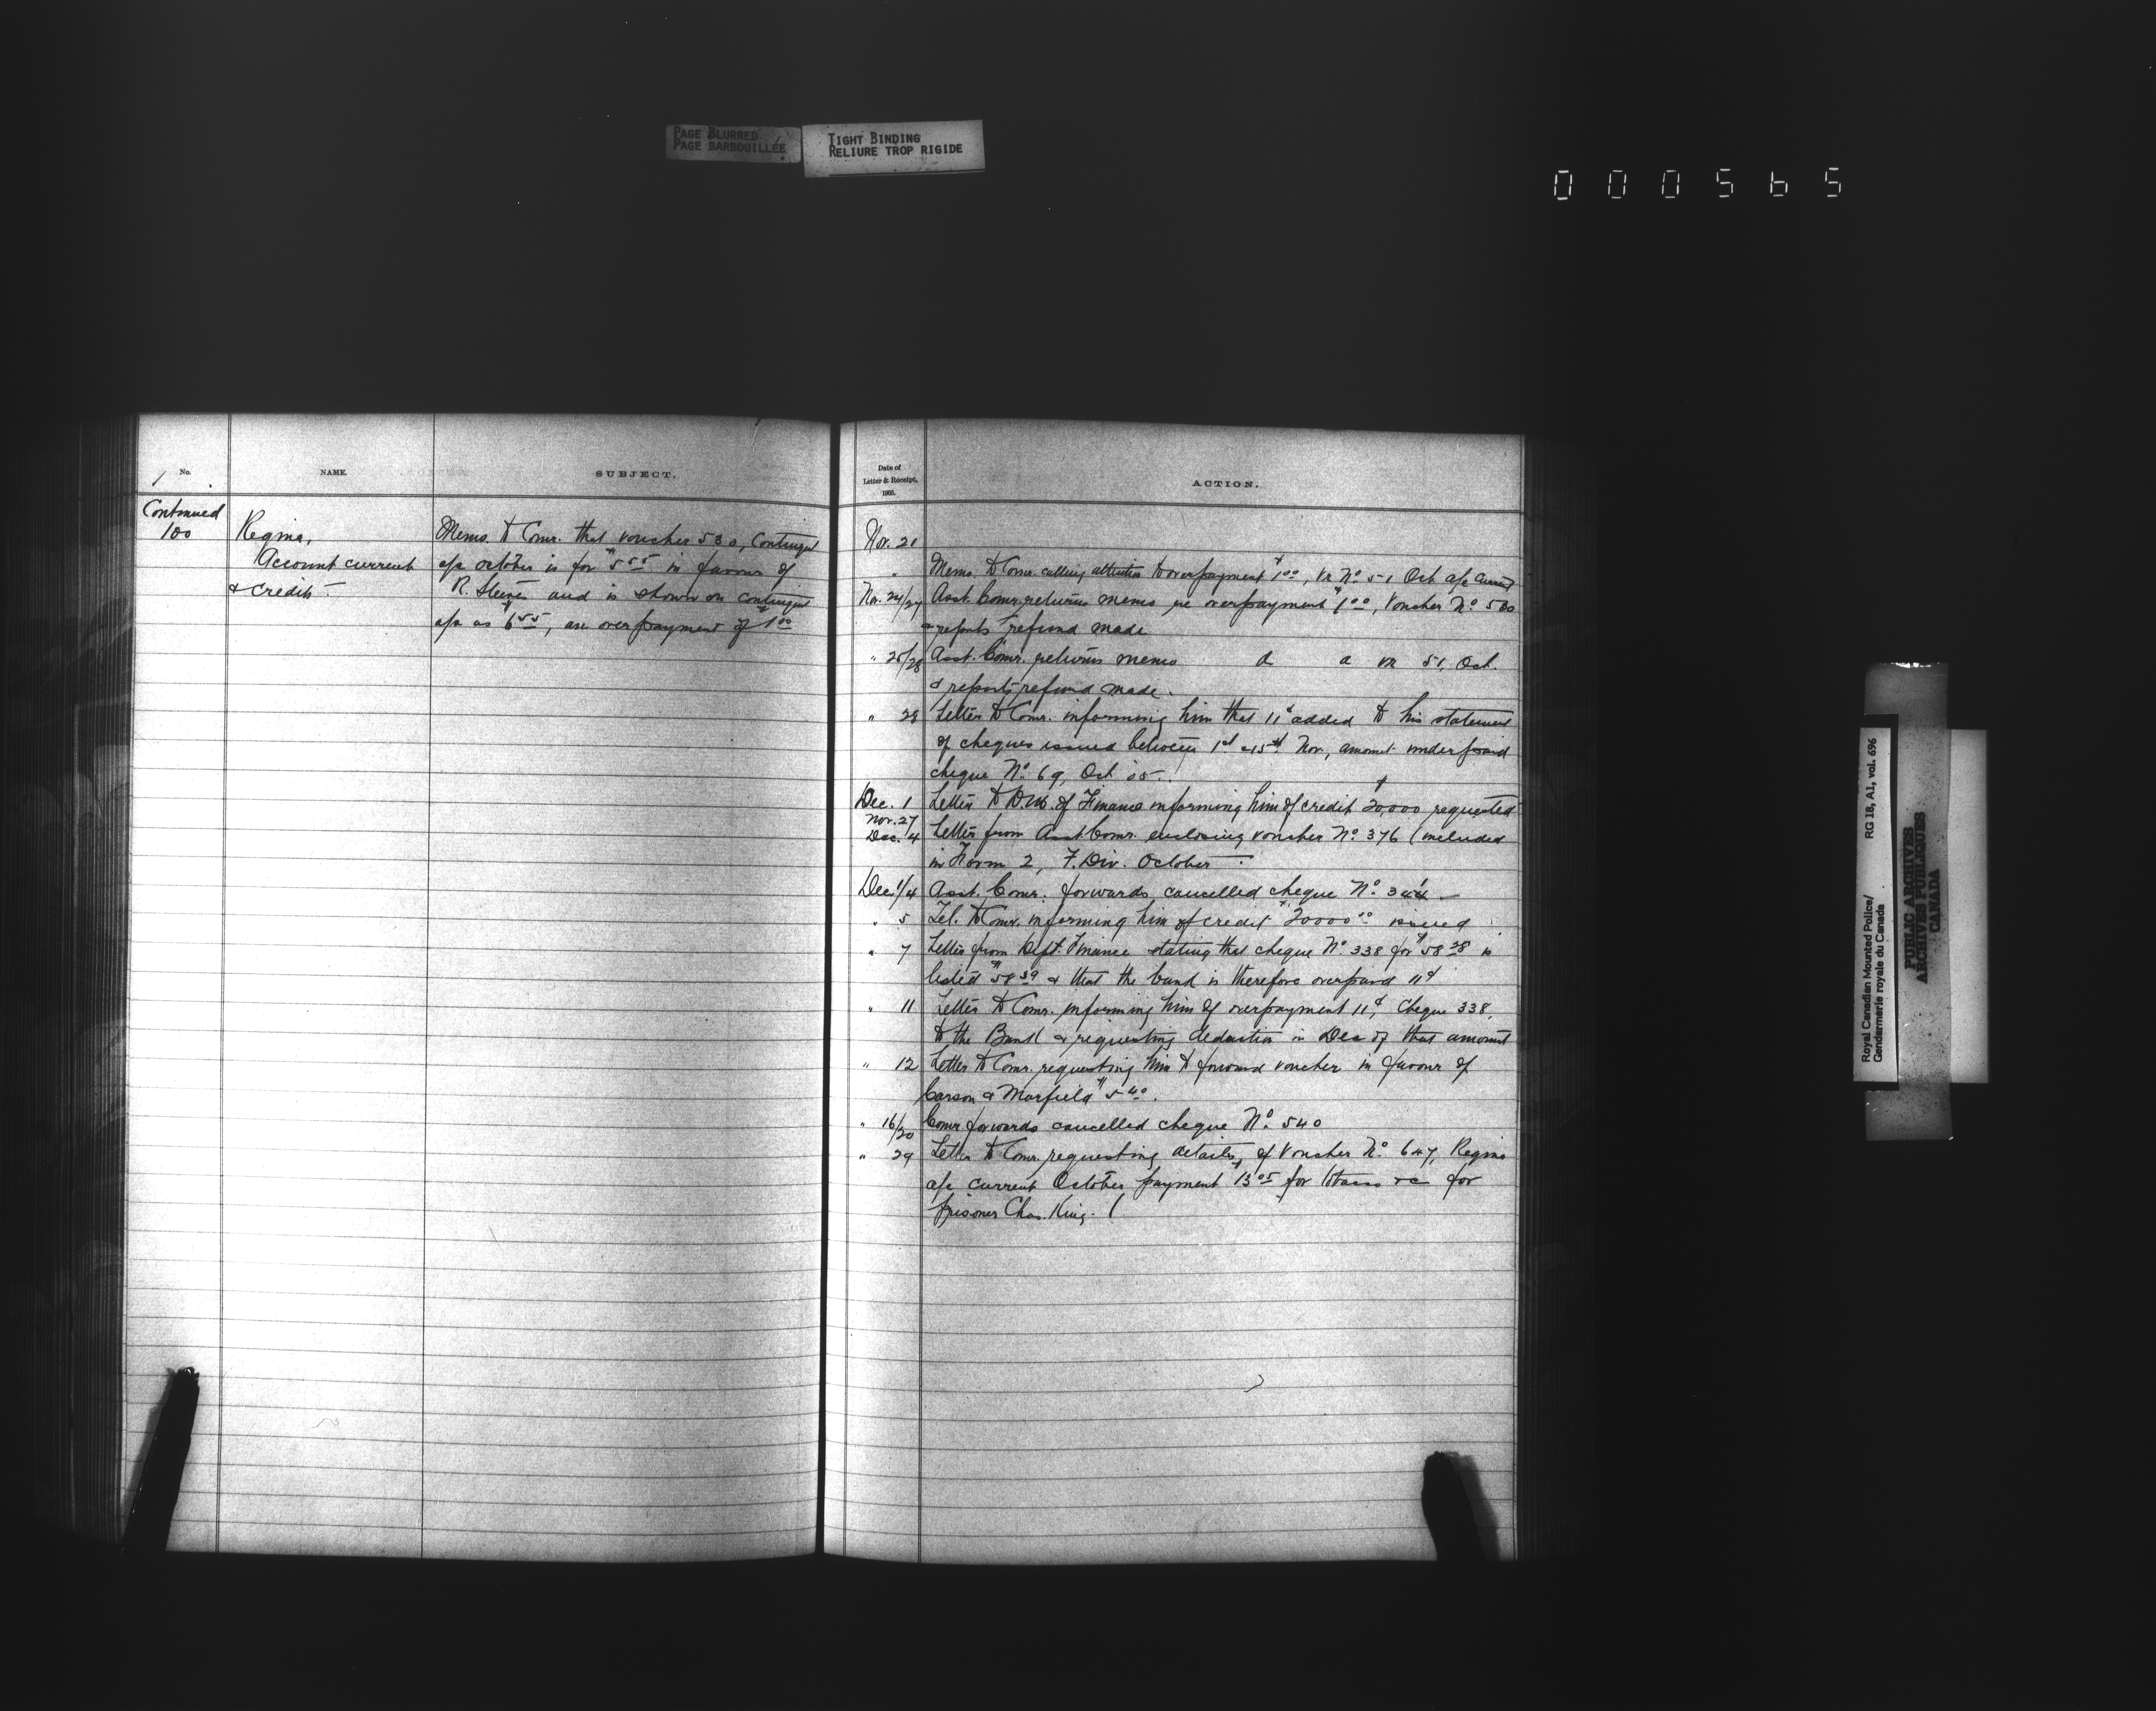 PAGE BLURRED
PAGE BARBOUILLÉE
TIGHT BINDING
RELIURE TROP RIGIDE
000565
No.
NAME.
SUBJECT.
Continued
100
Regina,
Account current
& credits –
Memo. to Comr. that voucher 530, Contingent
a/c October is for $5 55 in favour of
R. Steener and is shown on contingent
a/c as $6 55, an overpayment of $1 00
Date of
Letter & Receipt,
1905.
ACTION.
Nov. 21
" Memo. to Comr. calling attention to overpayment $1 00, Vr No. 51 Oct. a/c current
Nov. 24/27 Asst. Comr. returns memo re overpayment $1 00, Voucher No. 530
& reports refund made
" 25/28 Asst. Comr. returns memo d d vr 51, Oct.
& reports refund made.
" 28 Letter to Comr. informing him that 11¢ added to his statement
of cheques issued between 1st & 15th Nov., amount underpaid
cheque No. 69, Oct. '05.
Dec. 1 Letter to D.M. of Finance informing him of credit $20,000 requested
Nov. 27
Dec. 4 Letter from Asst. Comr. enclosing voucher No. 376 (included
in Form 2, F. Div. October.
Dec 1/4 Asst. Comr. forwards cancelled cheque No. 344 –
" 5 Tel. to Comr. informing him of credit $20000 00 issued
" 7 Letter from Dept. Finance stating that cheque No. 338 for $58 28 is
listed $58 39 & that the bank is therefore overpaid 11¢
" 11 Letter to Comr. informing him of overpayment 11¢, Cheque 338,
to the Bank & requesting deduction in Dec of that amount
" 12 Letter to Comr. requesting him to forward voucher in favour of
Carson & Morfield $5 40.
" 16/20 Comr. forwards cancelled cheque No. 540
" 29 Letter to Comr. requesting details of Voucher No. 647, Regina
a/c current October payment $13 05 for tobacco &c for
prisoner Chas. King. (
Royal Canadian Mounted Police/ RG 18, A1, vol. 696
Gendarmerie royale du Canada
PUBLIC ARCHIVES
ARCHIVES PUBLIQUES
CANADA